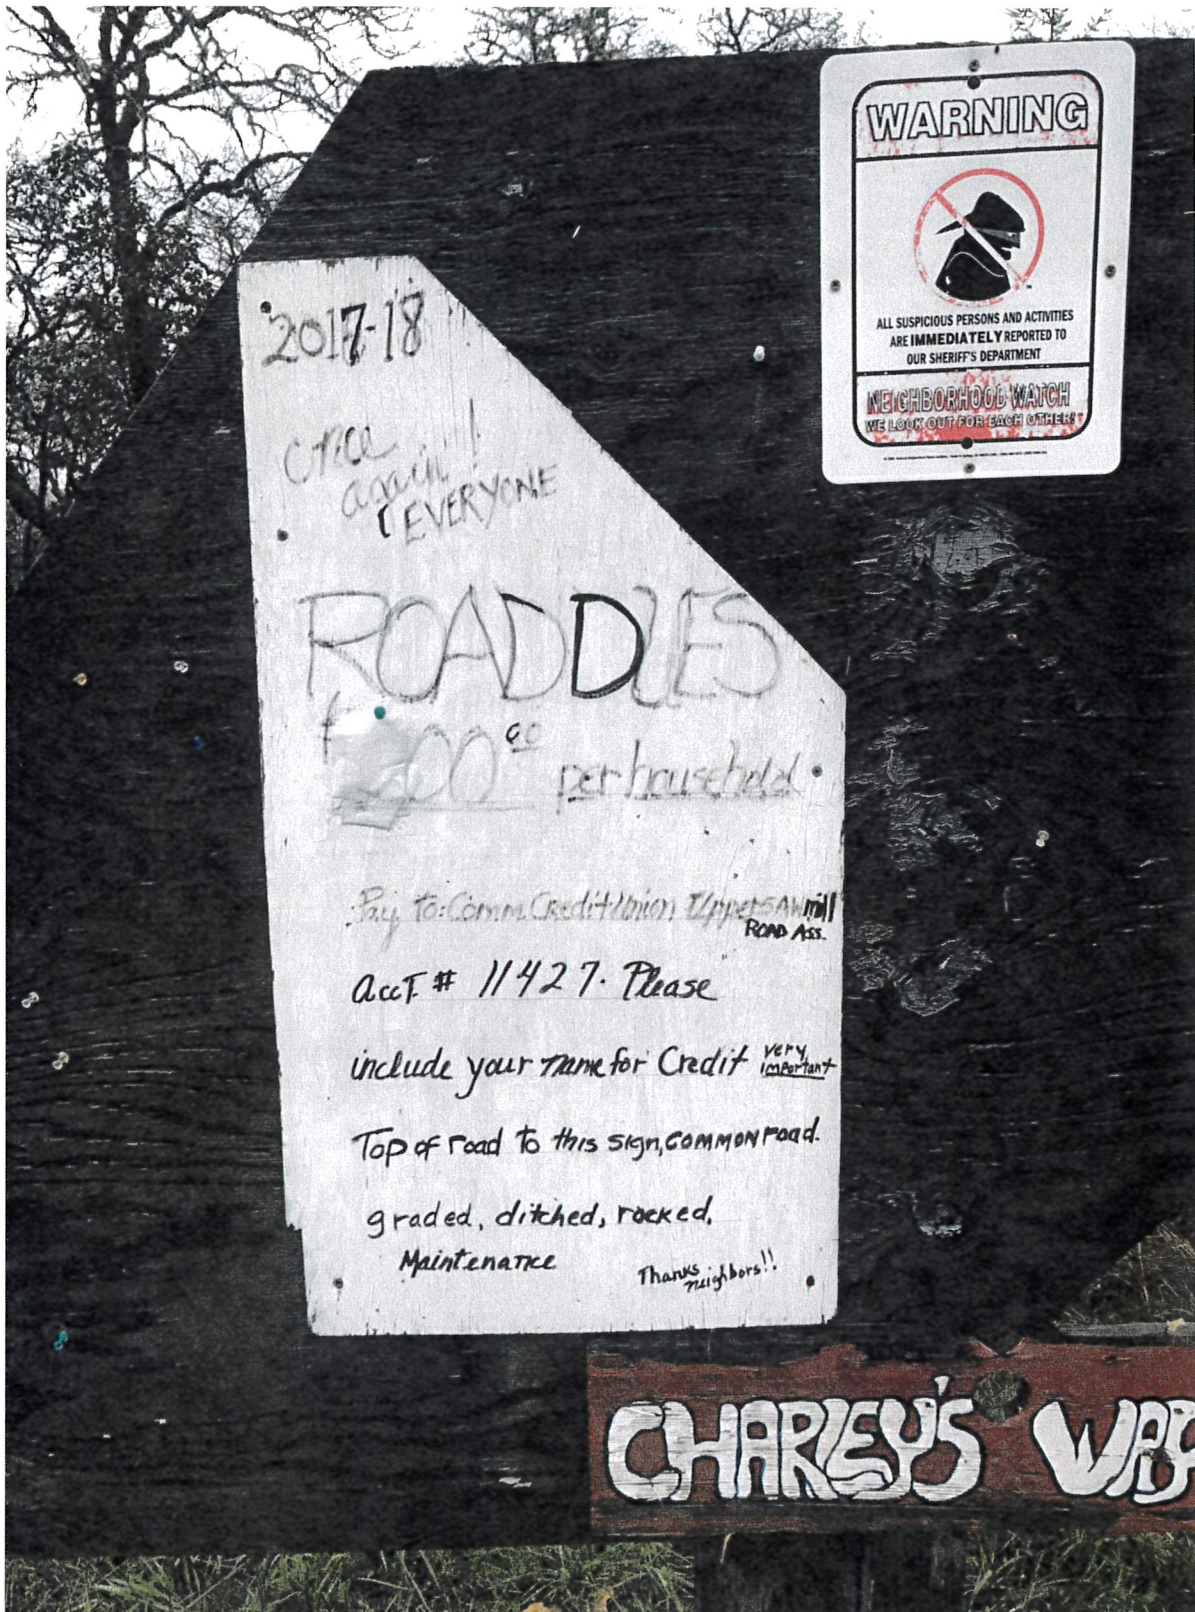 WARNING
ALL SUSPICIOUS PERSONS AND ACTIVITIES
ARE IMMEDIATELY REPORTED TO
OUR SHERIFF'S DEPARTMENT
NEIGHBORHOOD WATCH
WE LOOK OUT FOR EACH OTHER!
2017-18
once
again!
EVERYONE
ROAD DUES
00 00 per household
Pay to: Comm. Credit Union Upper SAWmill
ROAD ASS.
accT. # 11427. Please
include your name for Credit very
important
Top of road to this sign, COMMON road.
graded, ditched, rocked,
Maintenance
Thanks
neighbors!!
CHARLEY'S WAY